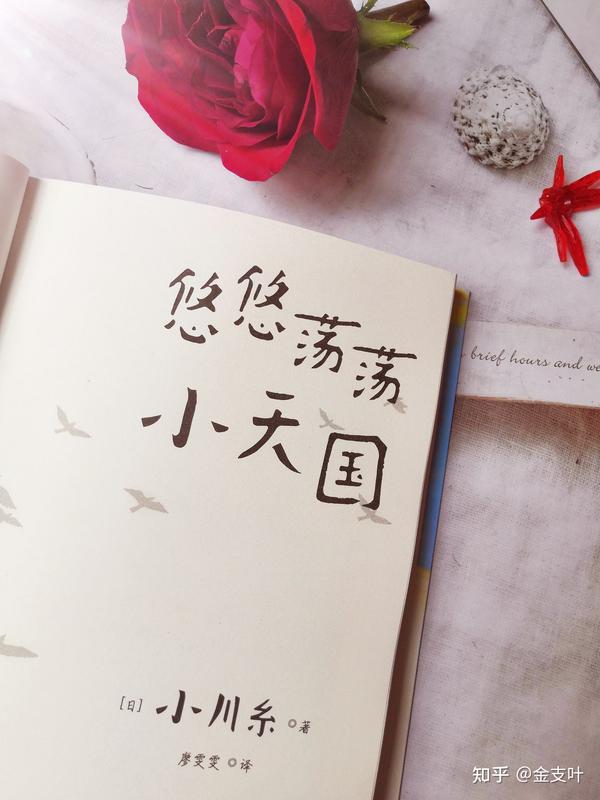 悠悠荡荡
小天国
brief hours and we
[日]小川糸 著
廖雯雯 译
知乎 @金支叶